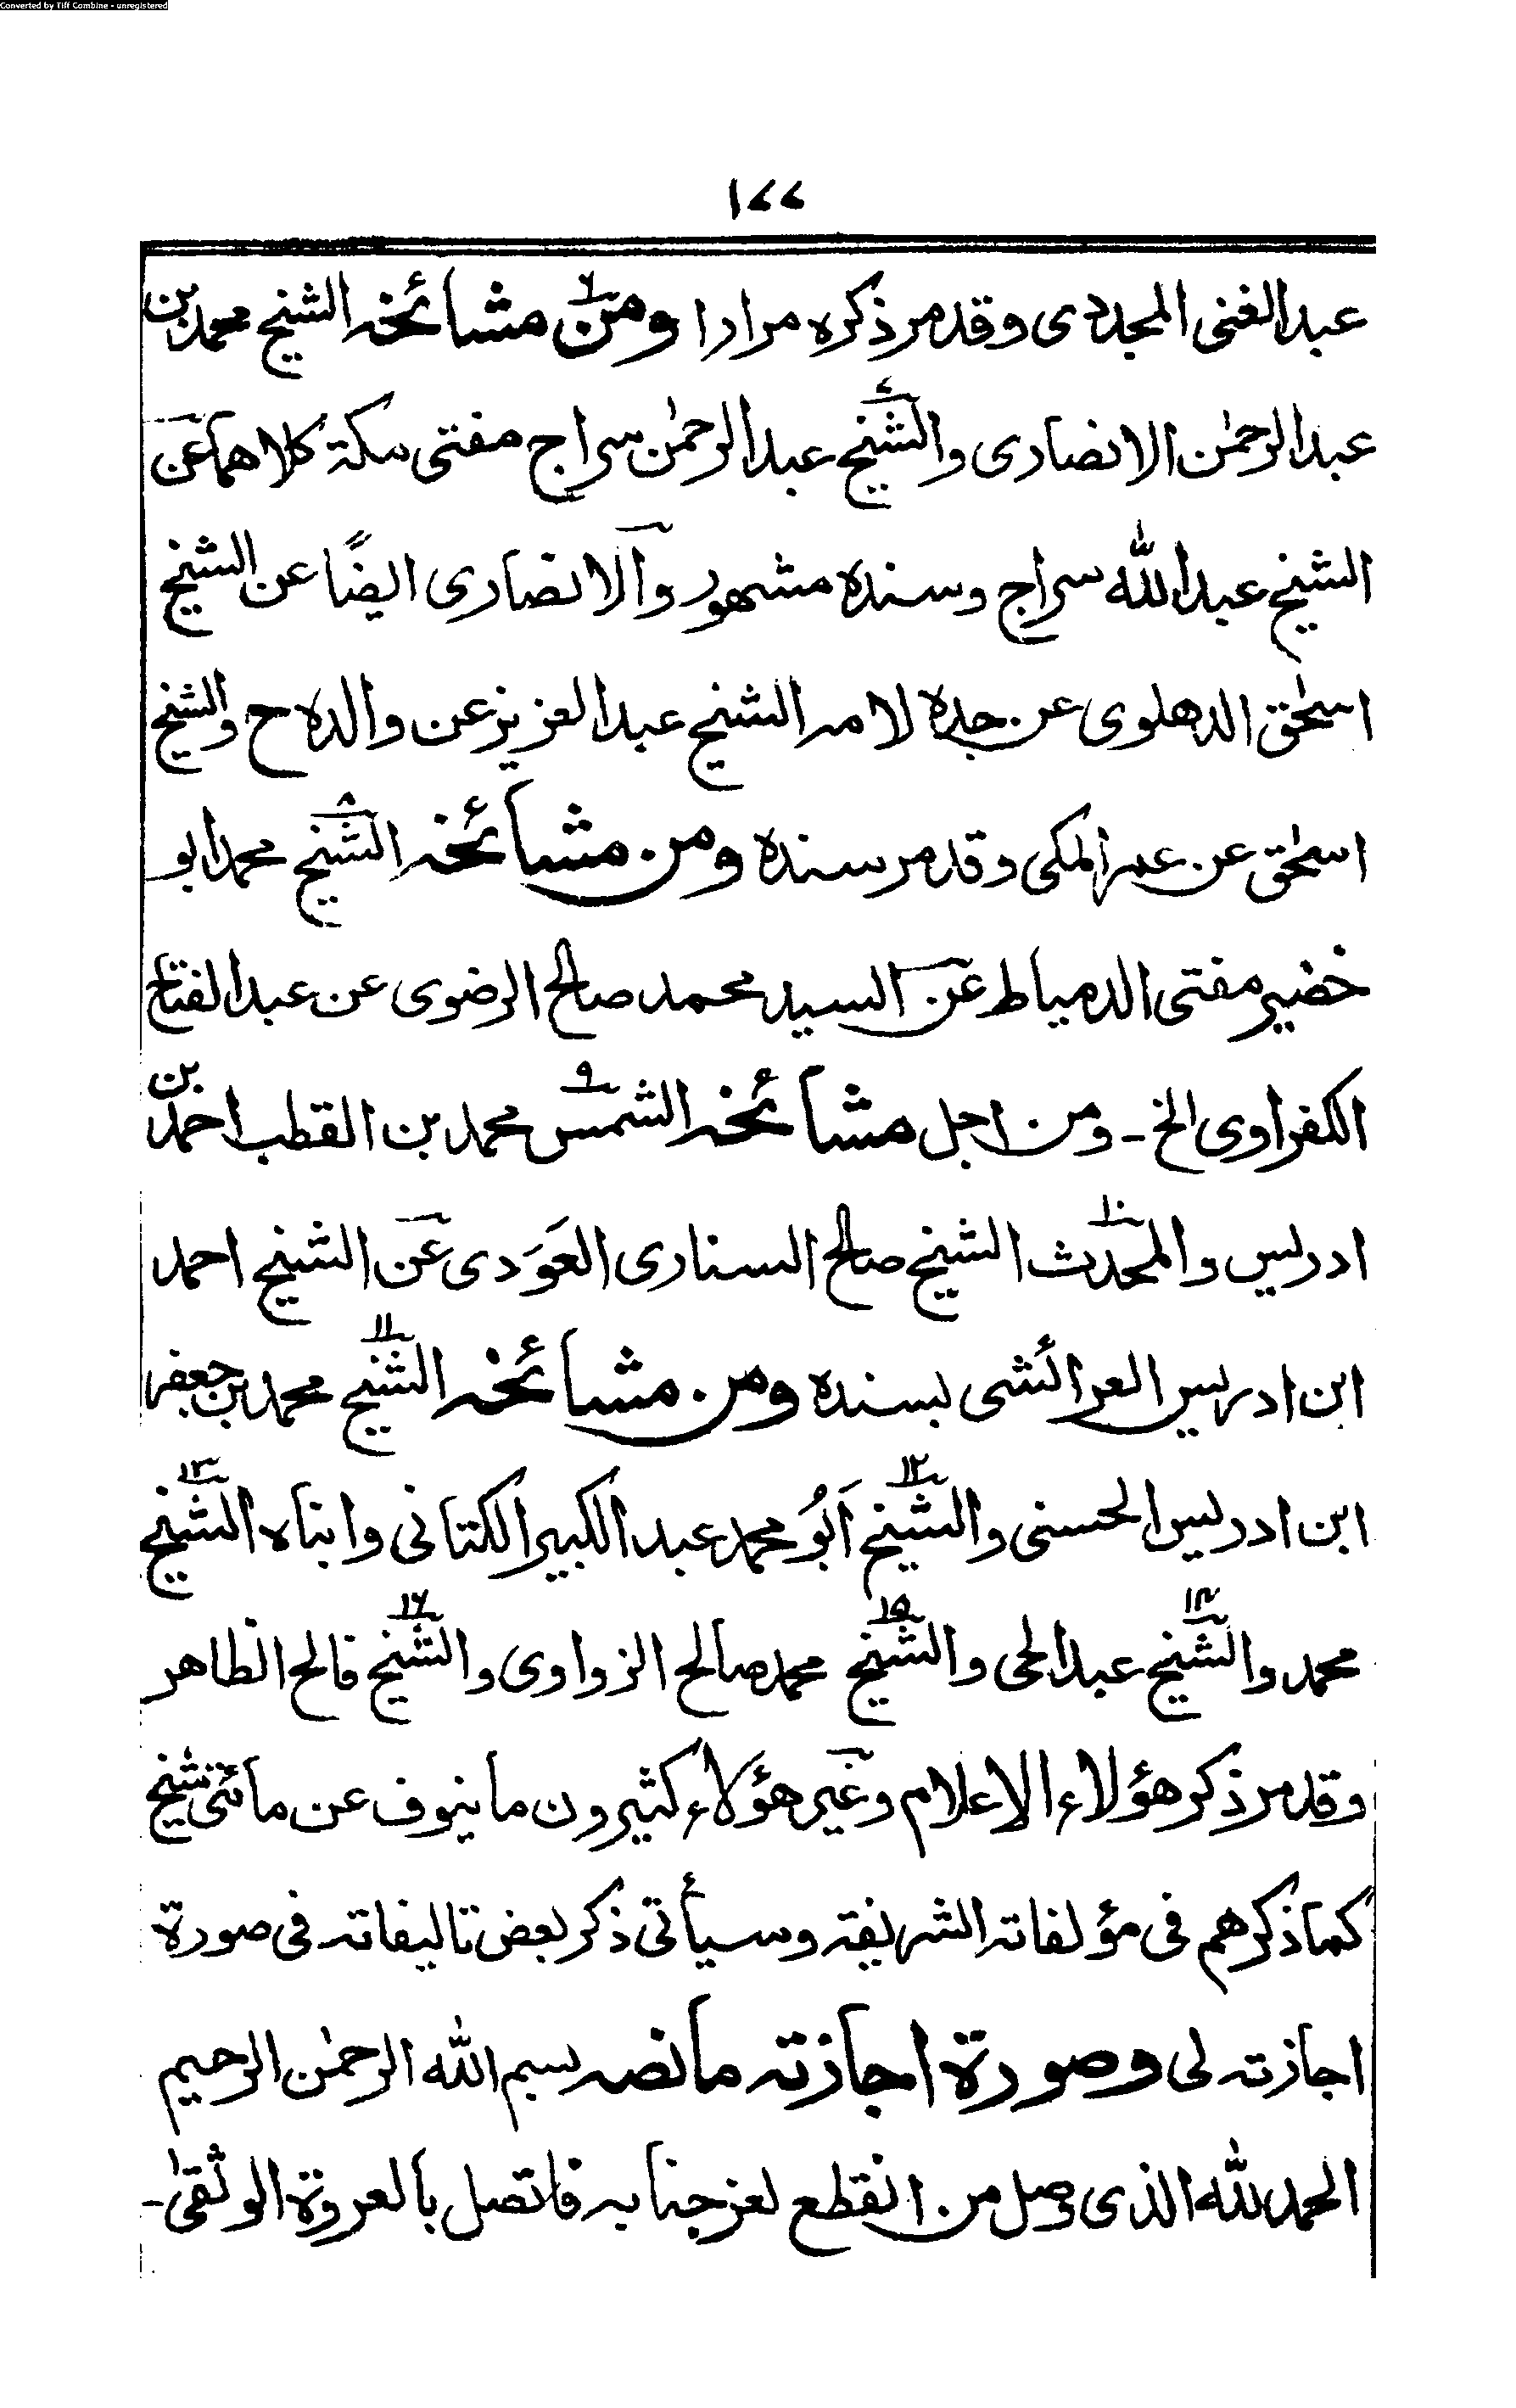 Converted by Tiff Combine - unregistered
١٧٧
عبدالغنی المجددی وقدمر ذکره مرارا ومن٦ مشائخہ الشیخ محمد بن
عبدالرحمٰن الانصاری والشیخ٧ عبدالرحمٰن سراج مفتی مکۃ کلاهما عن
الشیخ عبدالله سراج وسنده مشهور والانصاری ایضًا عن الشیخ
اسحٰق الدهلوی عن جده لامہ الشیخ عبدالعزیز عن والده ح والشیخ
اسحٰق عن عمر المکی وقدمر سنده ومن مشائخہ الشیخ٨ محمد ابو
خضیر مفتی الدمیاط عن السید محمد صالح الرضوی عن عبدالفتاح
الکفراوی الخ ـ ومن اجل مشائخہ الشمس٩ محمد بن القطب احمد بن
ادریس والمحدث١٠ الشیخ صالح السناری العَوَدی عن الشیخ احمد
ابن ادریس العرائشی بسنده ومن مشائخہ الشیخ١١ محمد بن جعفر
ابن ادریس الحسنی والشیخ١٢ اَبُو محمد عبدالکبیر الکتانی وابناه الشیخ١٣
محمد والشیخ١٤ عبدالحی والشیخ١٥ محمد صالح الزواوی والشیخ١٦ فالح الظاهر
وقدمر ذکر هؤلاء الاعلام وغیر هؤلاء کثیرون ما ینوف عن مائتی شیخ
کما ذکرهم فی مؤلفاتہ الشریفۃ وسیأتی ذکر بعض تالیفاتہ فی صورة
اجازتہ لی وصورة اجازتہ ما نصہ بسم الله الرحمٰن الرحیم
الحمدلله الذی وصل من انقطع لعز جنابہ فاتصل بالعروة الوثقیٰ ـ